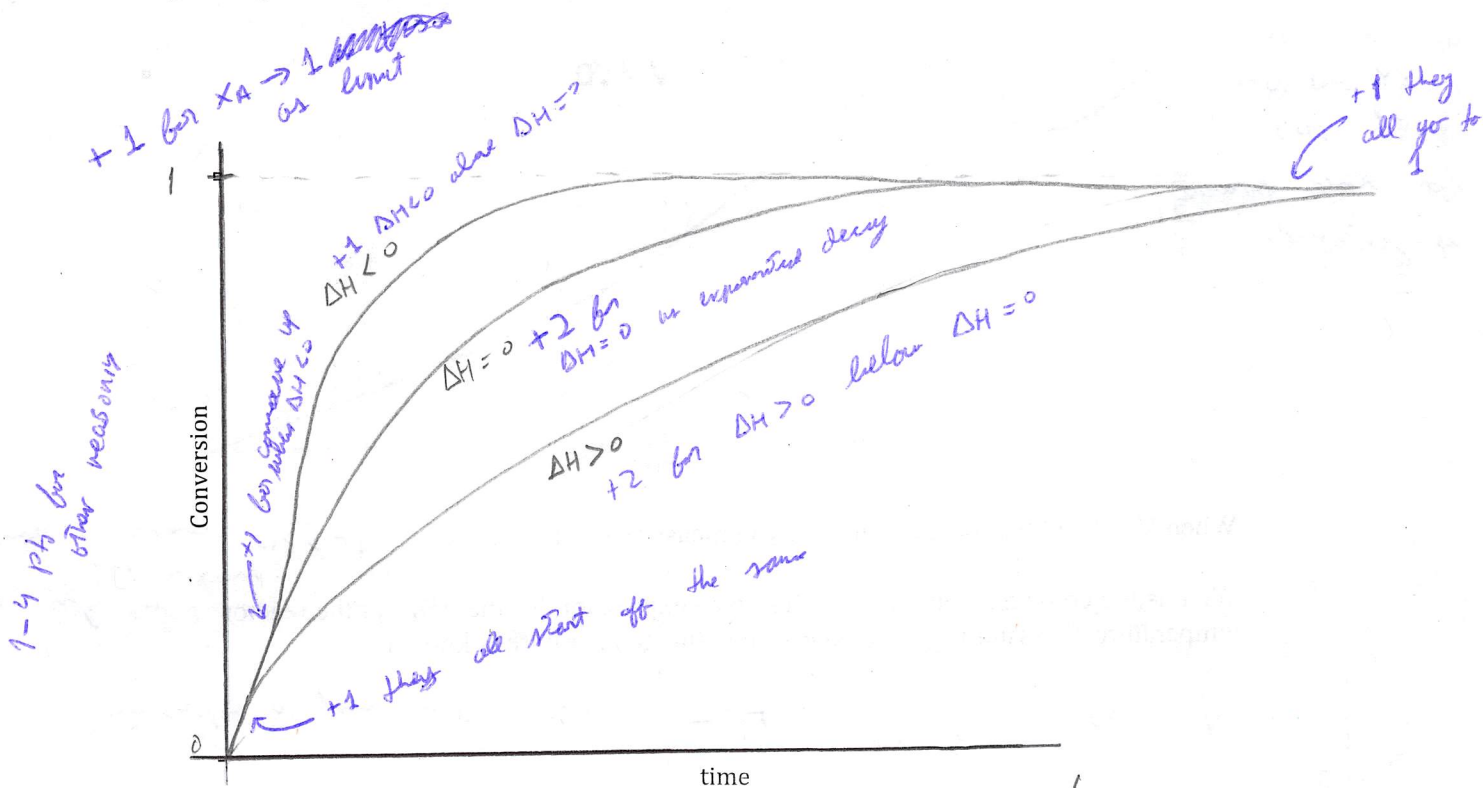 +1 for xA → 1
as limit
1
+1 they
all go to
1
+1 ΔH<0 above ΔH=
ΔH<0
+1 for concave up
when ΔH<0
ΔH=0
+2 for
ΔH=0 as exponential decay
ΔH>0
+2 for ΔH>0 below ΔH=0
1-4 pts for
other reasons
Conversion
+1 they all start off the same
0
time